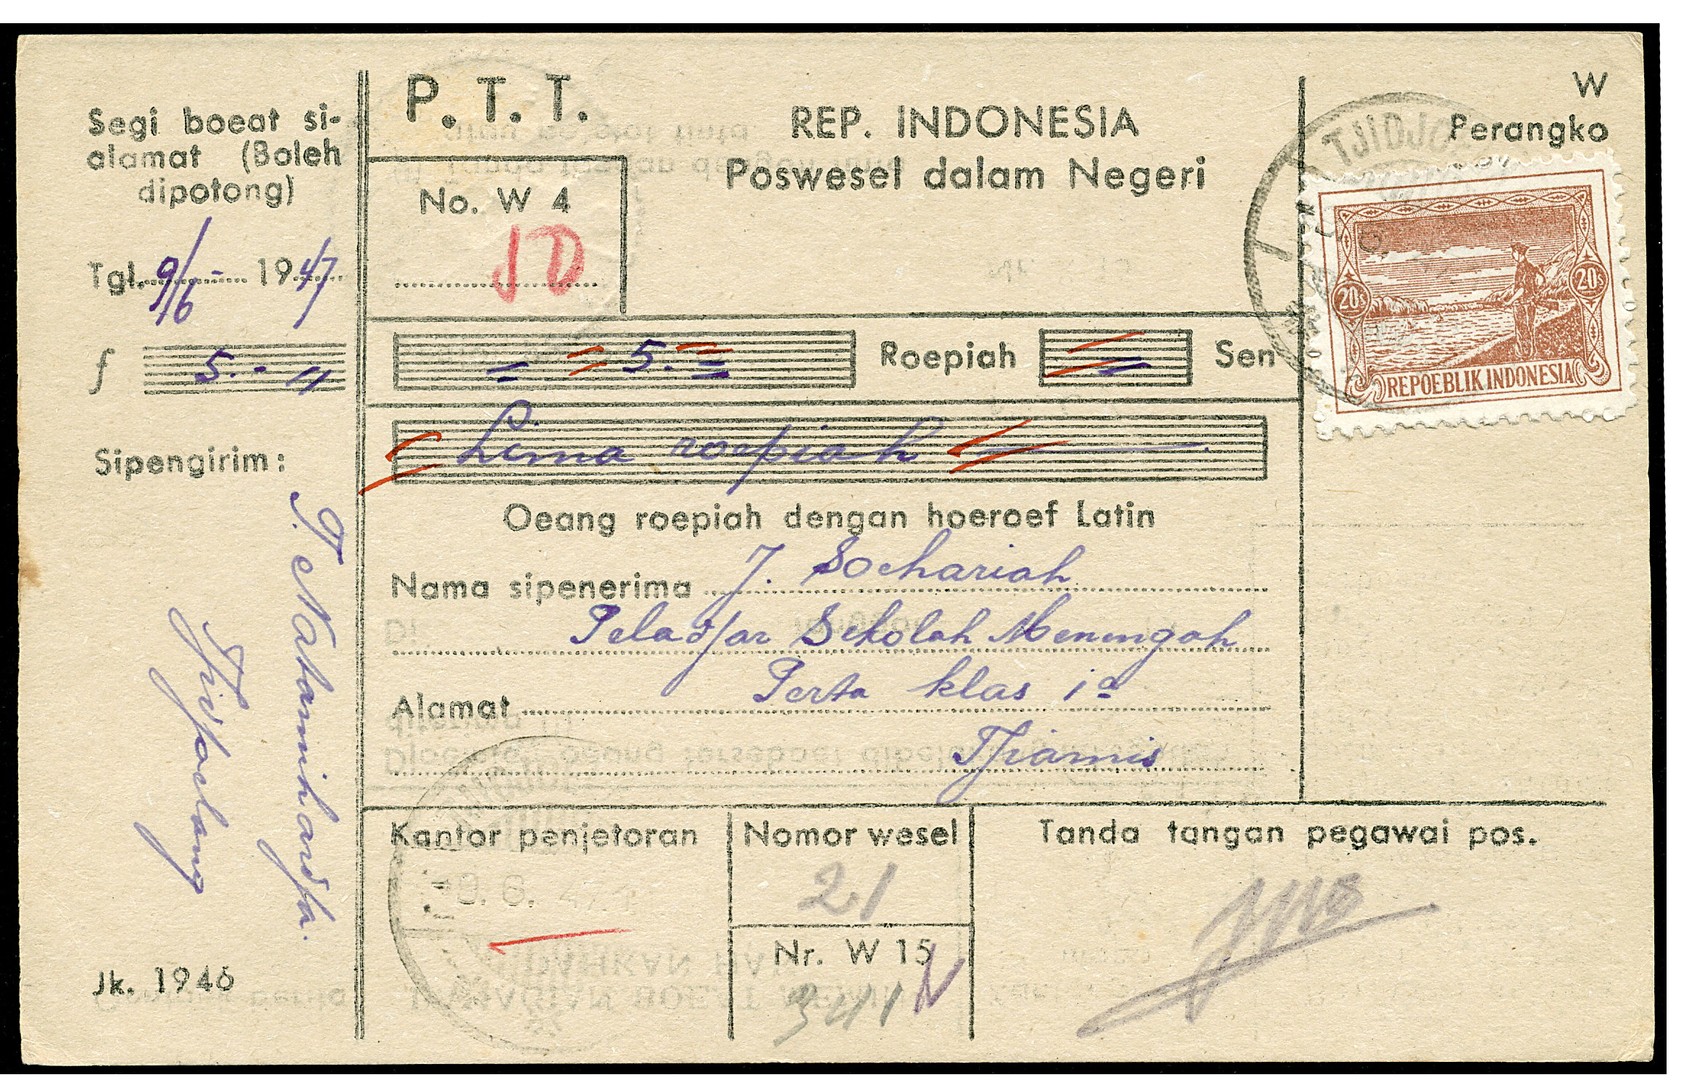 Segi boeat si-
alamat (Boleh
dipotong)
Tgl. 9/6 - 1947
f 5.- "
Sipengirim:
Tjidjoelang
Jk. 1946
P. T. T.
No. W 4
REP. INDONESIA
Poswesel dalam Negeri
W
Perangko
TJIDJO
20s 20s
REPOEBLIK INDONESIA
= = 5. = = Roepiah Sen
Lima roepiah
Oeang roepiah dengan hoeroef Latin
Nama sipenerima J. Soehariah
Peladjar Sekolah Menengah
Alamat Perta klas 1a
Tjiamis
Kantor penjetoran
9. 6. 47
Nomor wesel
21
Nr. W 15
3411
Tanda tangan pegawai pos.